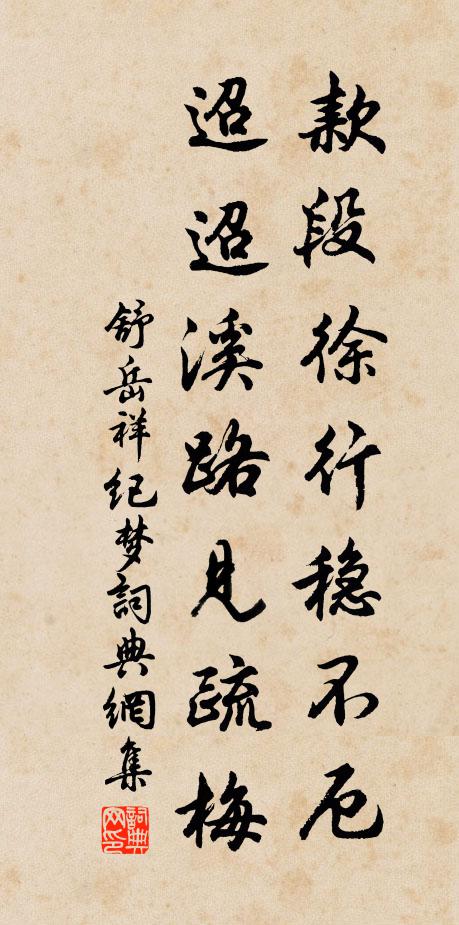 款段徐行稳不厄
迢迢溪路見疏梅
舒岳祥纪梦詞典網集
詞典网印